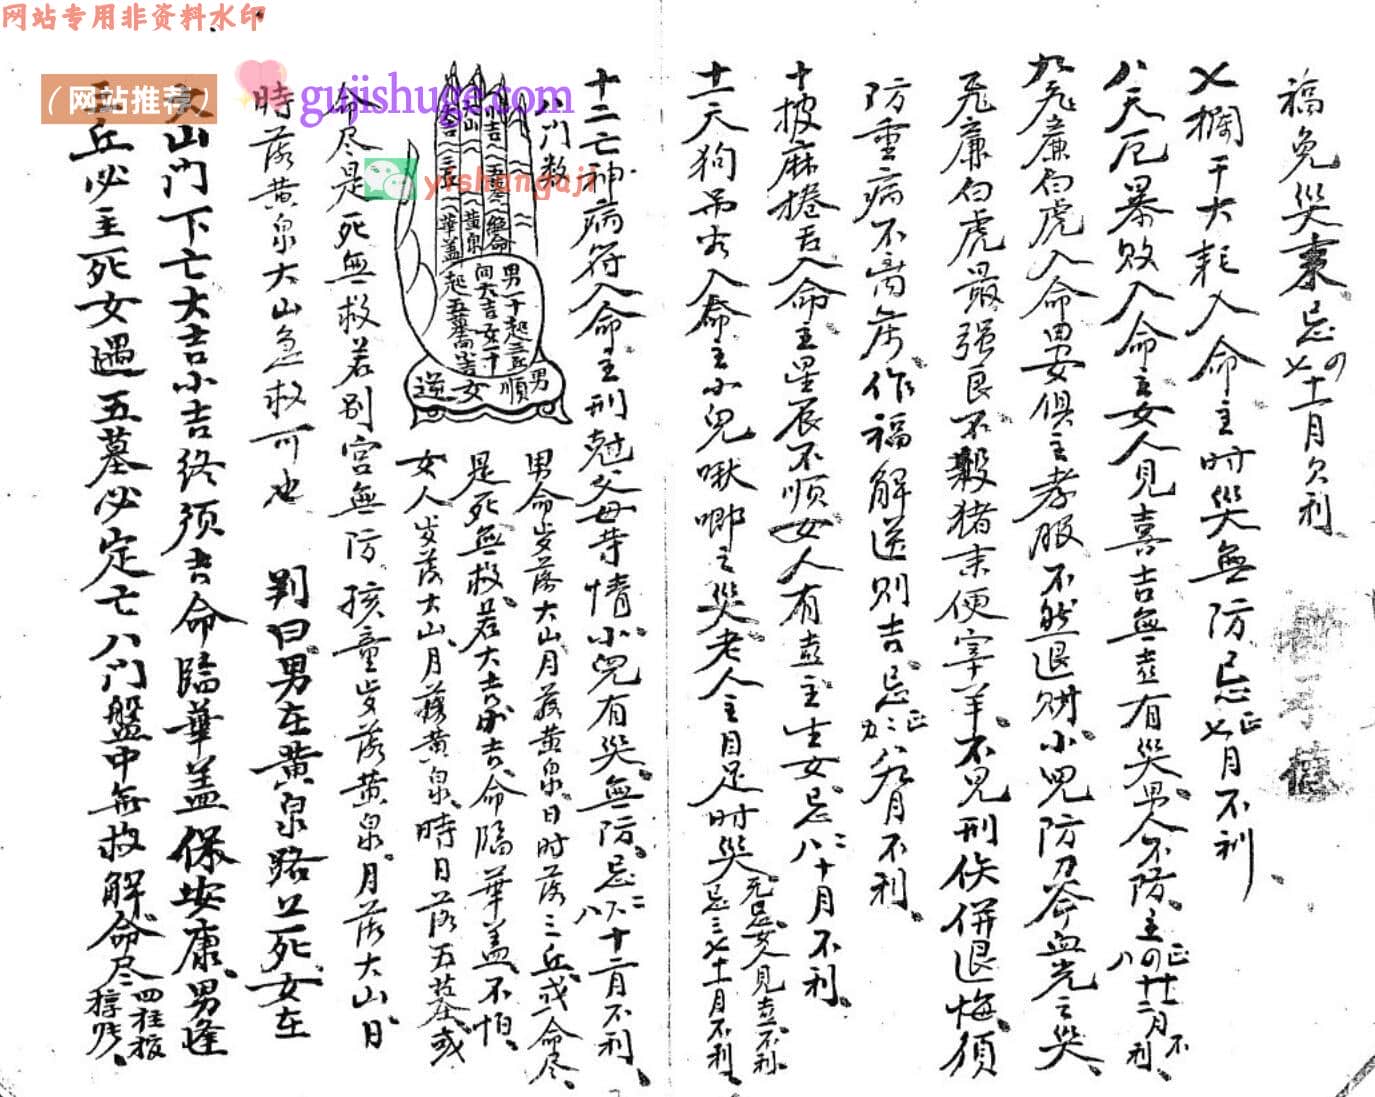 网站专用非资料水印
（网站推荐）
gujishuge.com
yishanguji
福免災 忌四七十一月欠利
七欄干大耗入命主时災無防忌正七月不利
八天厄暴败入命主女人見喜吉無喜有災男人不防主正四八十十二月不利
九飛廉白虎入命男女俱主孝服不然退財小兒防刀斧血光之災
飛廉白虎最强良不殺猪未便宰羊不見刑佚併退悔須
防重病不离床作福解送則吉忌正二九八月不利
十披麻捲舌入命主星辰不順女人有喜主生女忌二八十月不利
十一天狗吊客入命主小兒啾唧之災老人主目足时災无忌女人見喜不利忌三七十一月不利
十二亡神病符入命主刑尅父母等情小兒有災無防忌二八十二月不利
八門数
大吉 三丘 華盖 起
大山 黄泉
小吉 五墓 絕命
男一十起三丘
间大吉女一十
起五墓 小吉
男順女逆
男命岁落大山月落黄泉日时落三丘或命尽
是死無救若大吉小吉命臨華盖不怕
女人岁落大山月落黄泉時日落五墓或
命尽是死無救若别宫無防孩童岁落黄泉月落大山日
時落黄泉大山急救可也
判曰男在黄泉路上死女在
大山門下亡大吉小吉终须吉命臨華盖保安康男逢
三丘必主死女遇五墓必定亡八門盤中無救解命尽四柱